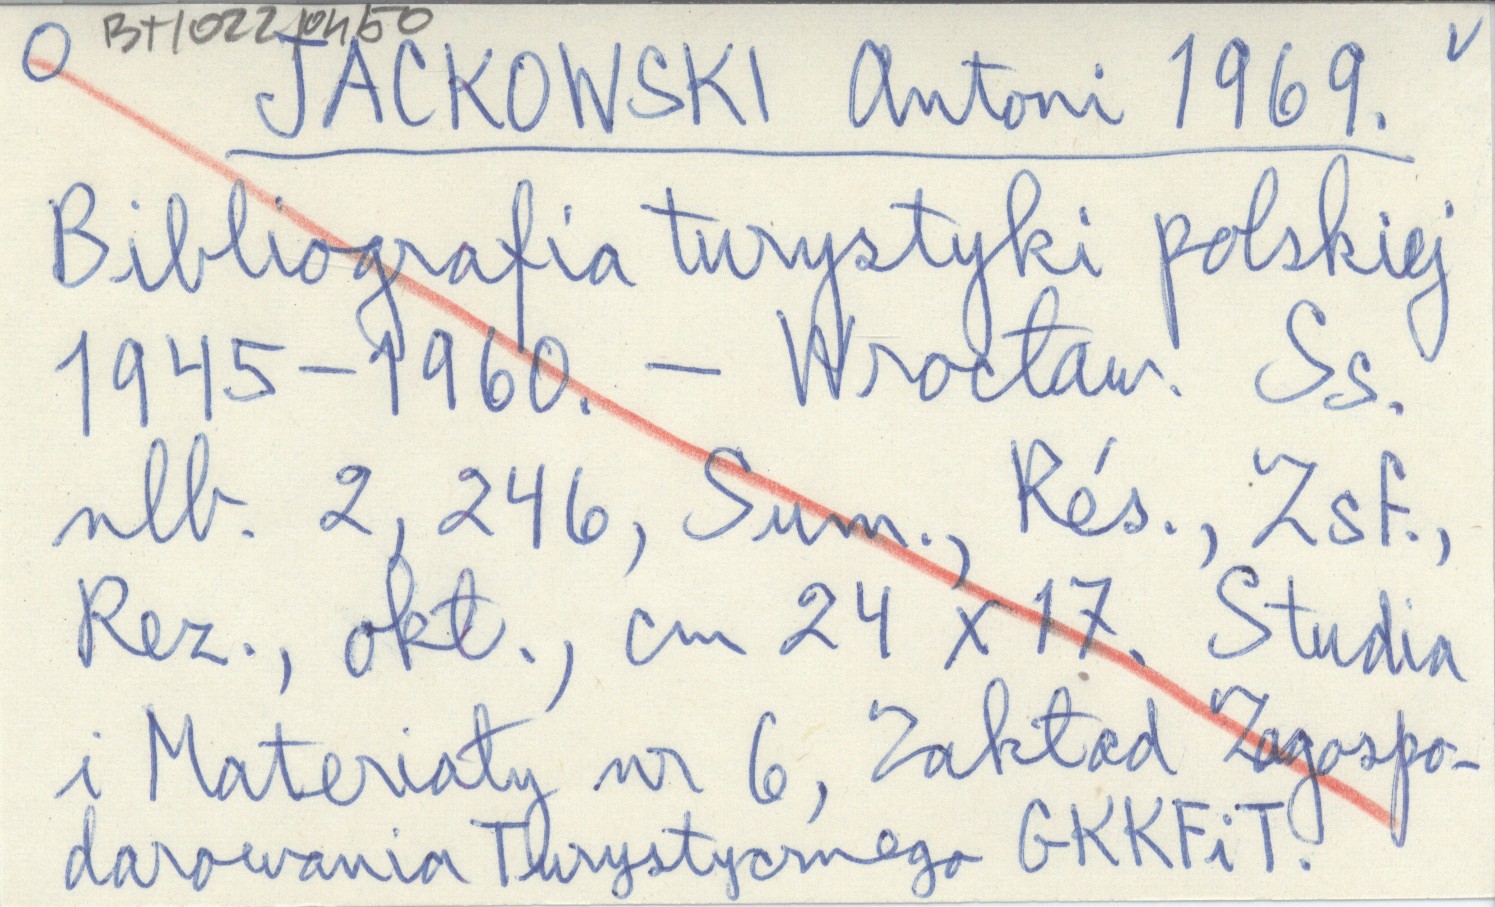 O
JACKOWSKI Antoni 1969.
Bibliografia turystyki polskiej
1945-1960. - Wrocław. Ss.
nlb. 2, 246, Sum., Rés., Zsf.,
Rez., okł., cm 24 x 17. Studia
i Materiały nr 6, Zakład Zagospo-
darowania Turystycznego GKKFiT.